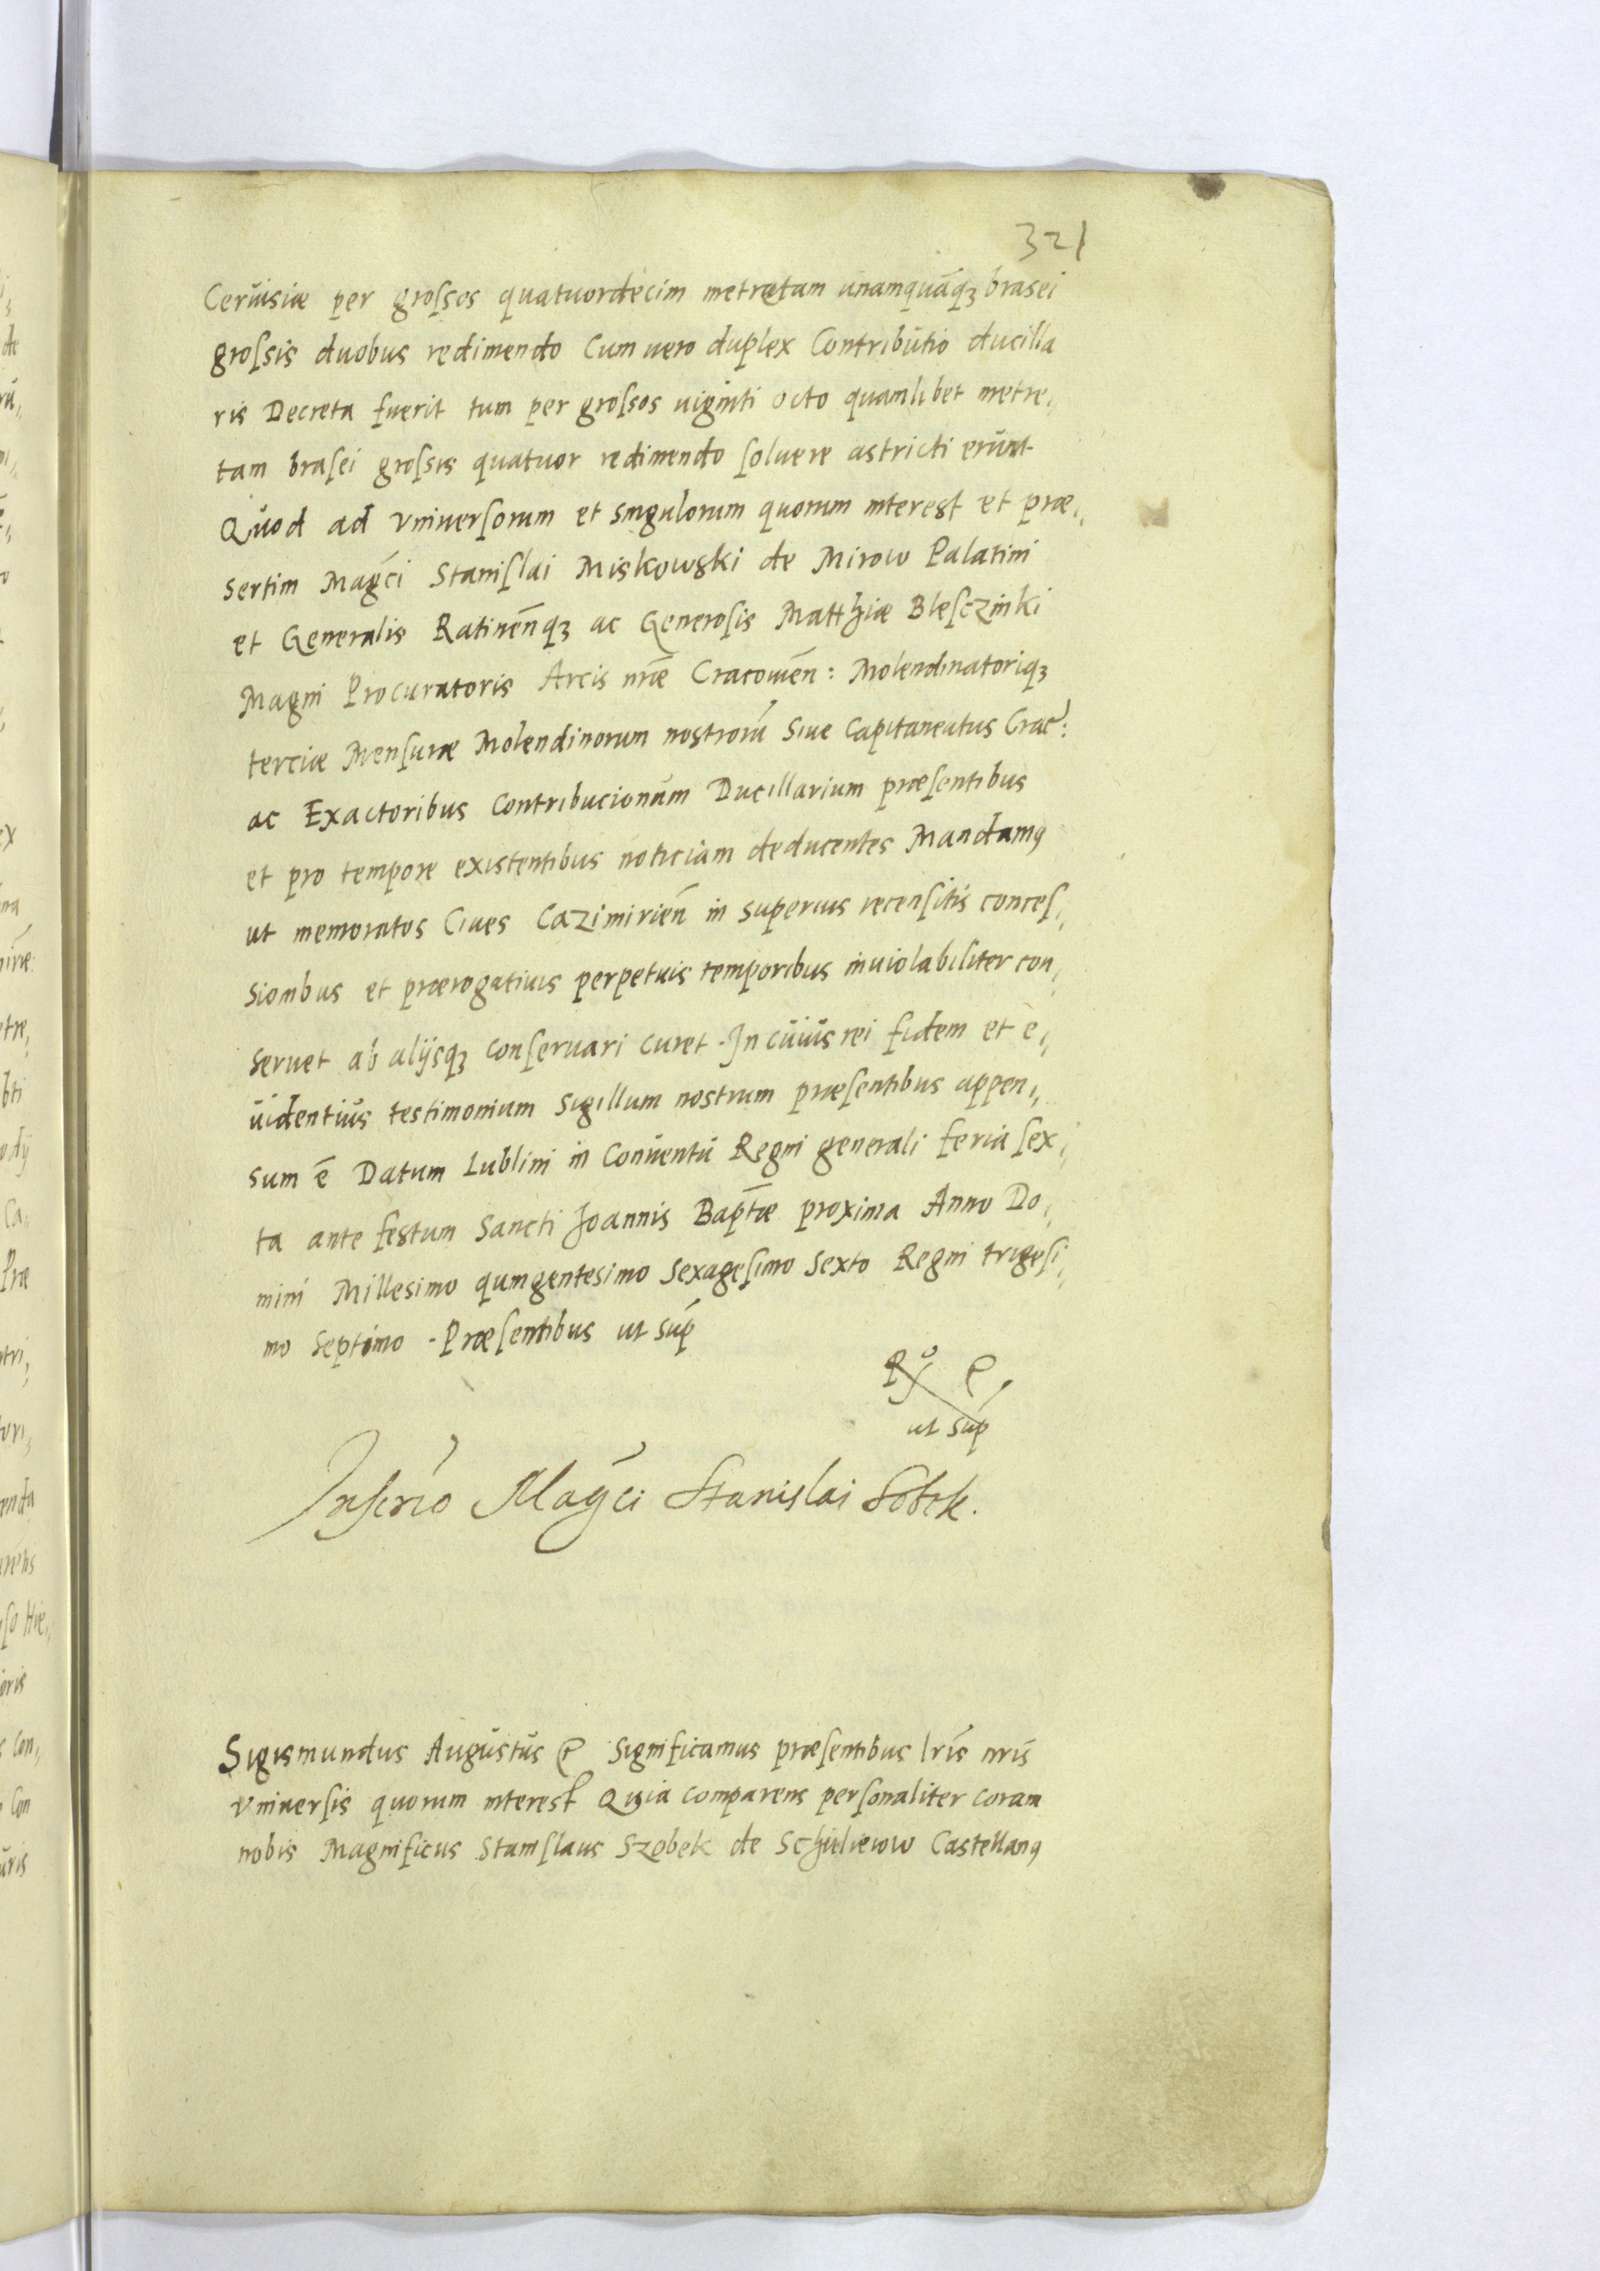 321
Ceruisiæ per grossos quatuordecim metretam unamquāqȝ brasei
grossis duobus redimendo Cum uero duplex Contributio ducilla
ris Decreta fuerit tum per grossos uiginti octo quamlibet metre,,
tam brasei grossis quatuor redimendo soluere astricti erunt
Quod ad vniuersorum et singulorum quorum interest et præ,,
sertim Magci Stanislai Miskowski de Mirow Palatini
et Generalis ac Generosis Matthiæ Blesczinki
Magni Procuratoris Arcis nr̃æ Cracouieñ: Molendinatoriqȝ
terciæ Mensuræ Molendinorum nostrorū siue Capitaneatus Crac:
ac Exactoribus Contribucionum Ducillarium præsentibus
et pro tempore existentibus noticiam deducentes Mandamꝰ
ut memoratos Ciues Cazimirieñ in superius recensitis conces,,
sionibus et prærogatiuis perpetuis temporibus inuiolabiliter con,,
seruet ab alijsqȝ conseruari curet. In cuius rei fidem et e,,
uidentius testimonium sigillum nostrum præsentibus appen,,
sum ẽ Datum Lublini in Conuentu Regni generali feria sex,,
ta ante festum Sancti Joannis Bapt̃æ proxima Anno Do,,
mini Millesimo quingentesimo sexagesimo sexto Regni trigesi,,
mo septimo. Præsentibus ut sup
ut sup
Inscrio Magci Stanislai Sobek.
Sigismundus Augustus &c Significamus præsentibus lr̃is nr̃is
vniuersis quorum interest Quia comparens personaliter coram
nobis Magnificus Stanislaus Szobek de Schuliewow Castellanꝰ